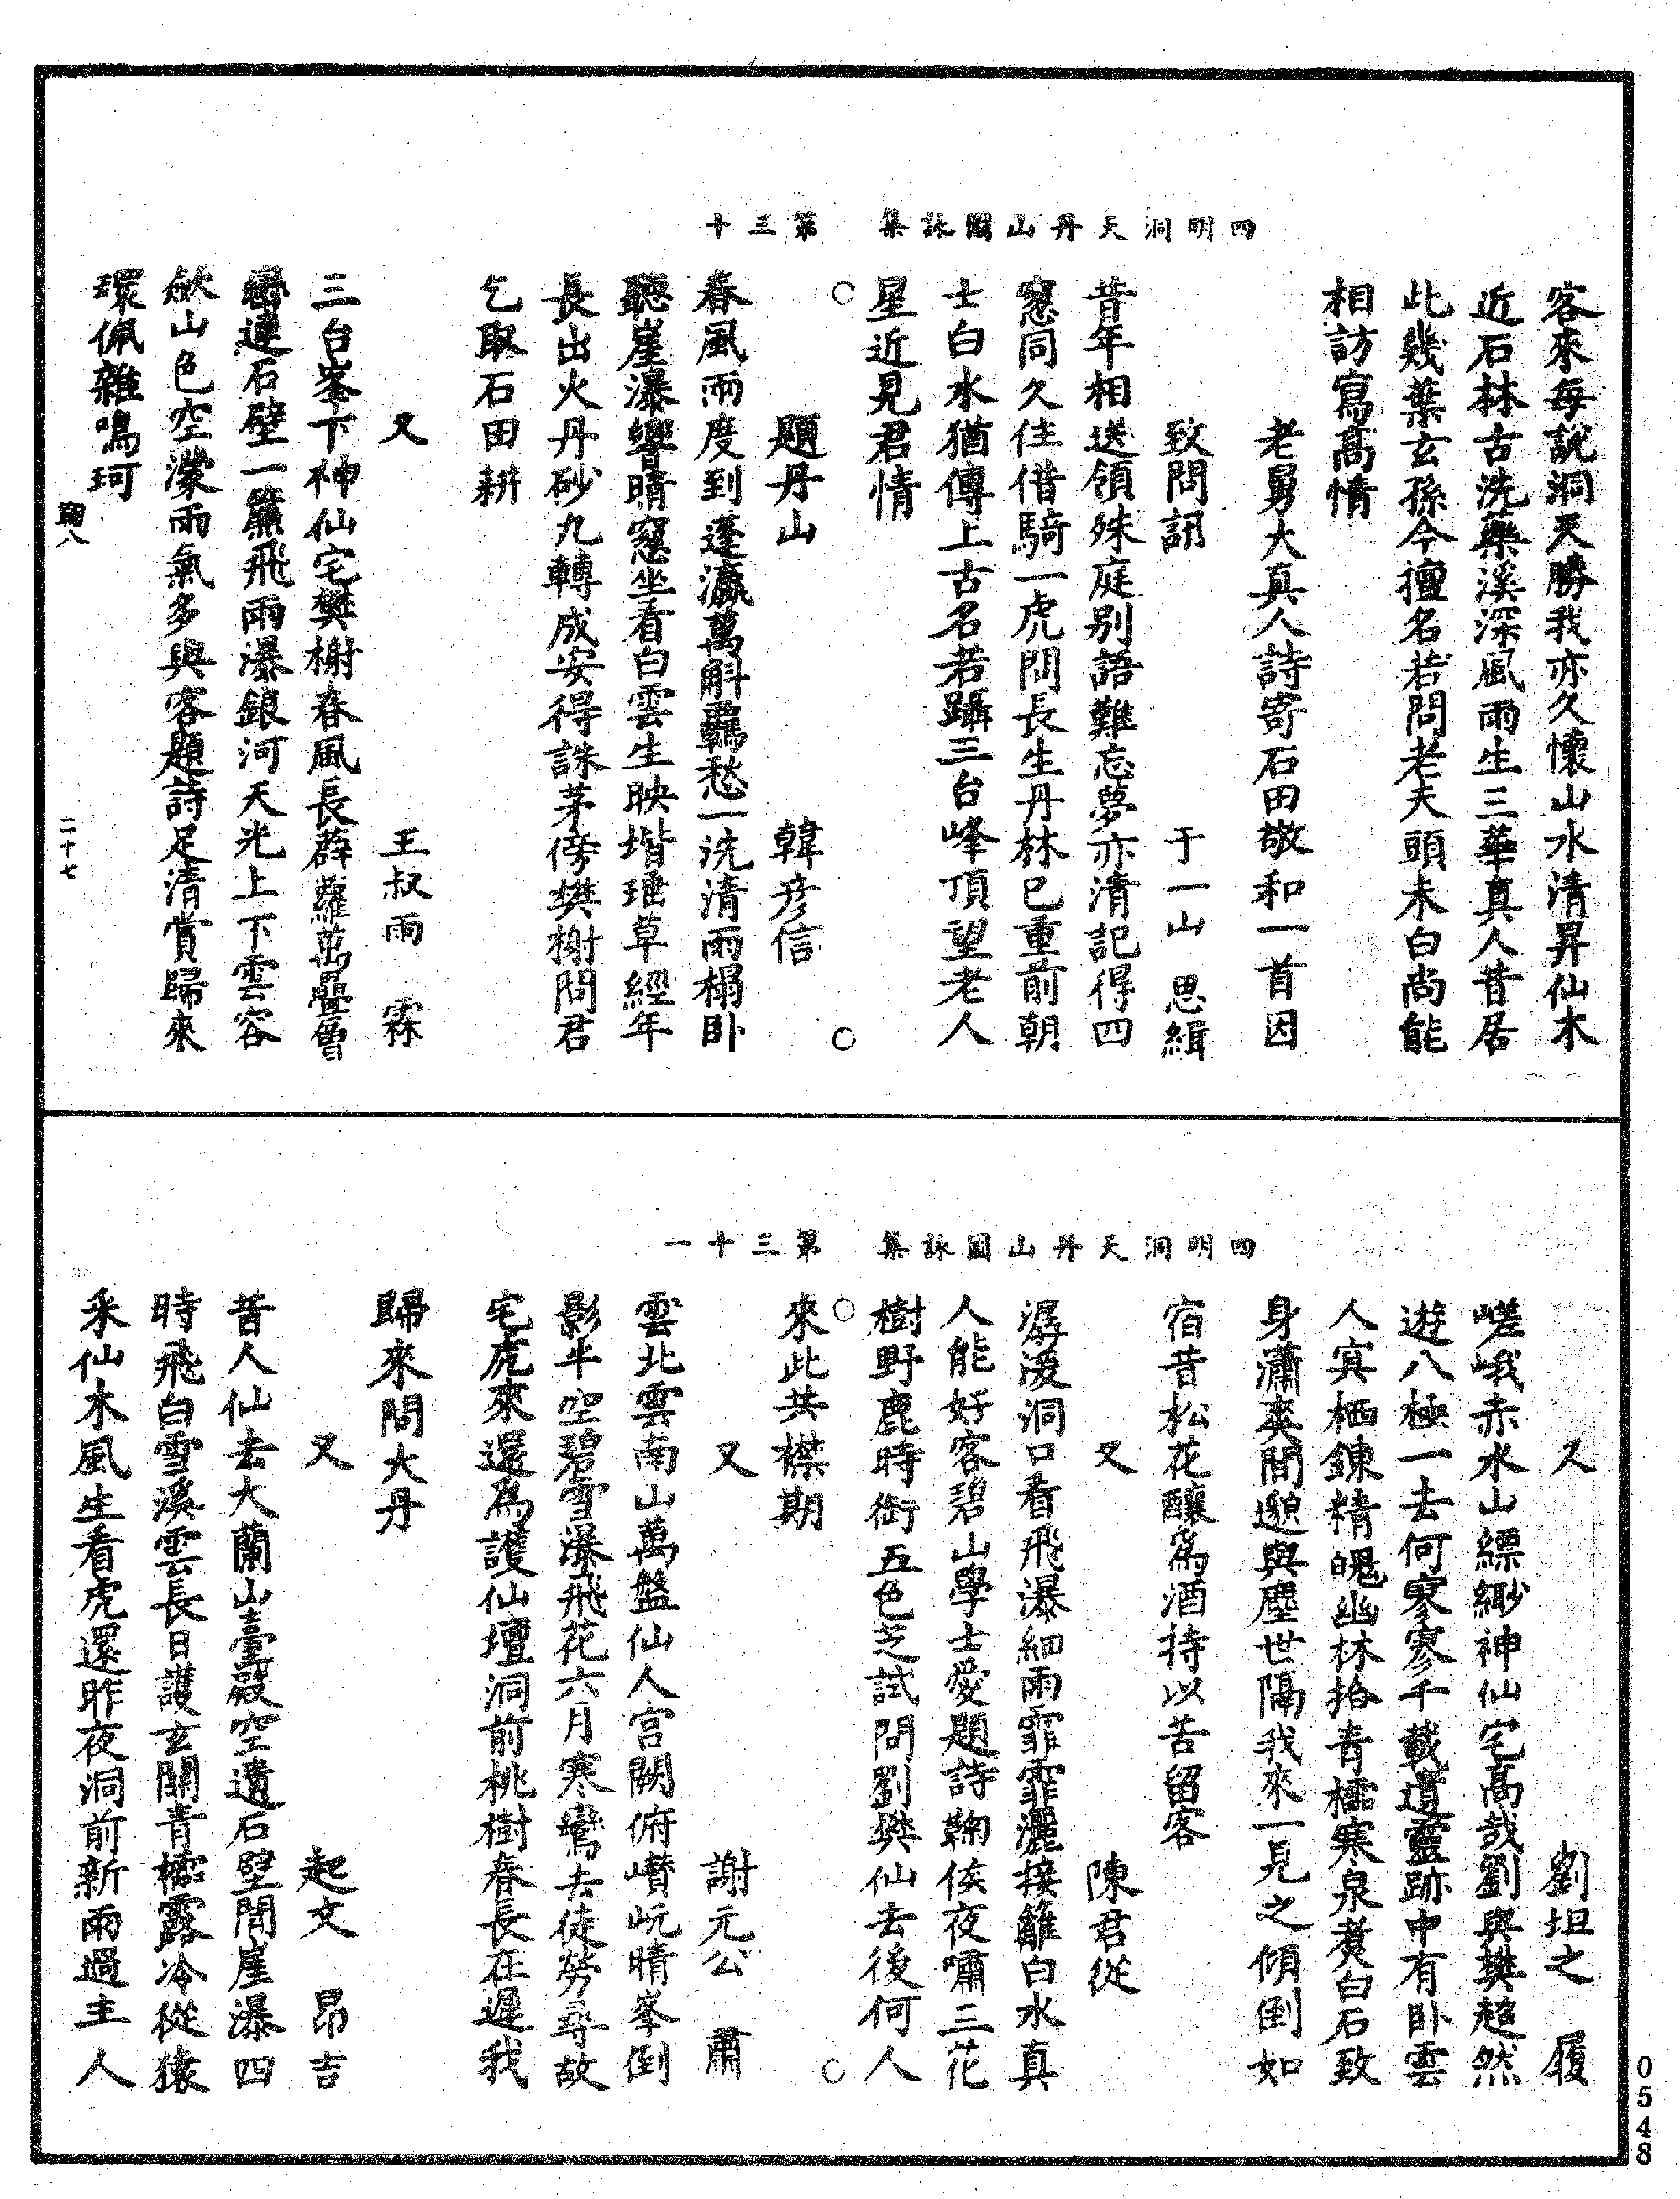 四明洞天丹山圖詠集　第三十
客來每說洞天勝我亦久懷山水清昇仙木
近石林古洗藥溪深風雨生三華真人昔居
此幾葉玄孫今擅名若問老夫頭未白尚能
相訪寫高情
老舅大真人詩寄石田敬和一首因
致問訊　于一山　思緝
昔年相送領殊庭别語難忘夢亦清記得四
窓同久住借騎一虎問長生丹林已重前朝
士白水猶傳上古名若躡三台峰頂望老人
星近見君情
○　○
題丹山　韓彦信
春風雨度到蓬瀛萬斛覊愁一洗清雨榻卧
聽崖瀑響晴窓坐看白雲生映堦瑶草經年
長出火丹砂九轉成安得誅茅傍樊榭問君
乞取石田耕
又　王叔雨　霖
三台峯下神仙宅樊榭春風長薜蘿萬疊層
巒連石壁一簾飛雨瀑銀河天光上下雲容
歛山色空濛雨氣多與客題詩足清賞歸來
環佩雜鳴珂
鞠八
二十七
四明洞天丹山圖詠集　第三十一
又　劉坦之　履
嵯峨赤水山縹緲神仙宅高哉劉與樊超然
遊八極一去何寥寥千載遺靈跡中有卧雲
人㝠栖錬精魄幽林拾青櫺寒泉煑白石致
身瀟爽間邈與塵世隔我來一見之傾倒如
宿昔松花釀爲酒持以苦留客
又　陳君從
潺湲洞口看飛瀑細雨霏霏灑接籬白水真
人能好客碧山學士愛題詩鞠侯夜嘯三花
樹野鹿時銜五色芝試問劉樊仙去後何人
來此共襟期
○　○
又　謝元公　肅
雲北雲南山萬盤仙人宫闕俯巑岏晴峯倒
影半空碧雪瀑飛花六月寒鸞去徒勞尋故
宅虎來還爲護仙壇洞前桃樹春長在遲我
歸來問大丹
又　起文　昂吉
昔人仙去大蘭山臺殿空遺石壁間崖瀑四
時飛白雪溪雲長日護玄關青櫺露冷從猿
采仙木風生看虎還昨夜洞前新雨過主人
0548